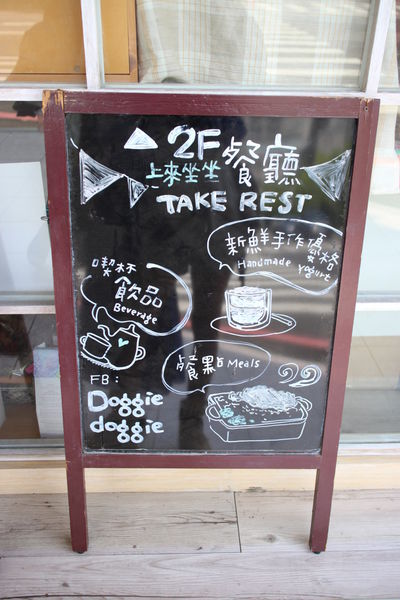 2F餐廳
上來坐坐
TAKE REST
新鮮手作優格
Handmade yogurt
喫杯
飲品
Beverage
餐點 Meals
FB:
Doggie
doggie